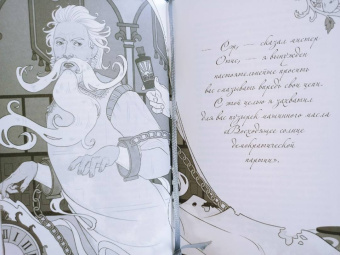 — Сэр, — сказал мистер
Отис, — я вынужден
настоятельно просить
вас смазывать впредь свои цепи.
С этой целью я захватил
для вас пузырек машинного масла
«Восходящее солнце
демократической
партии».